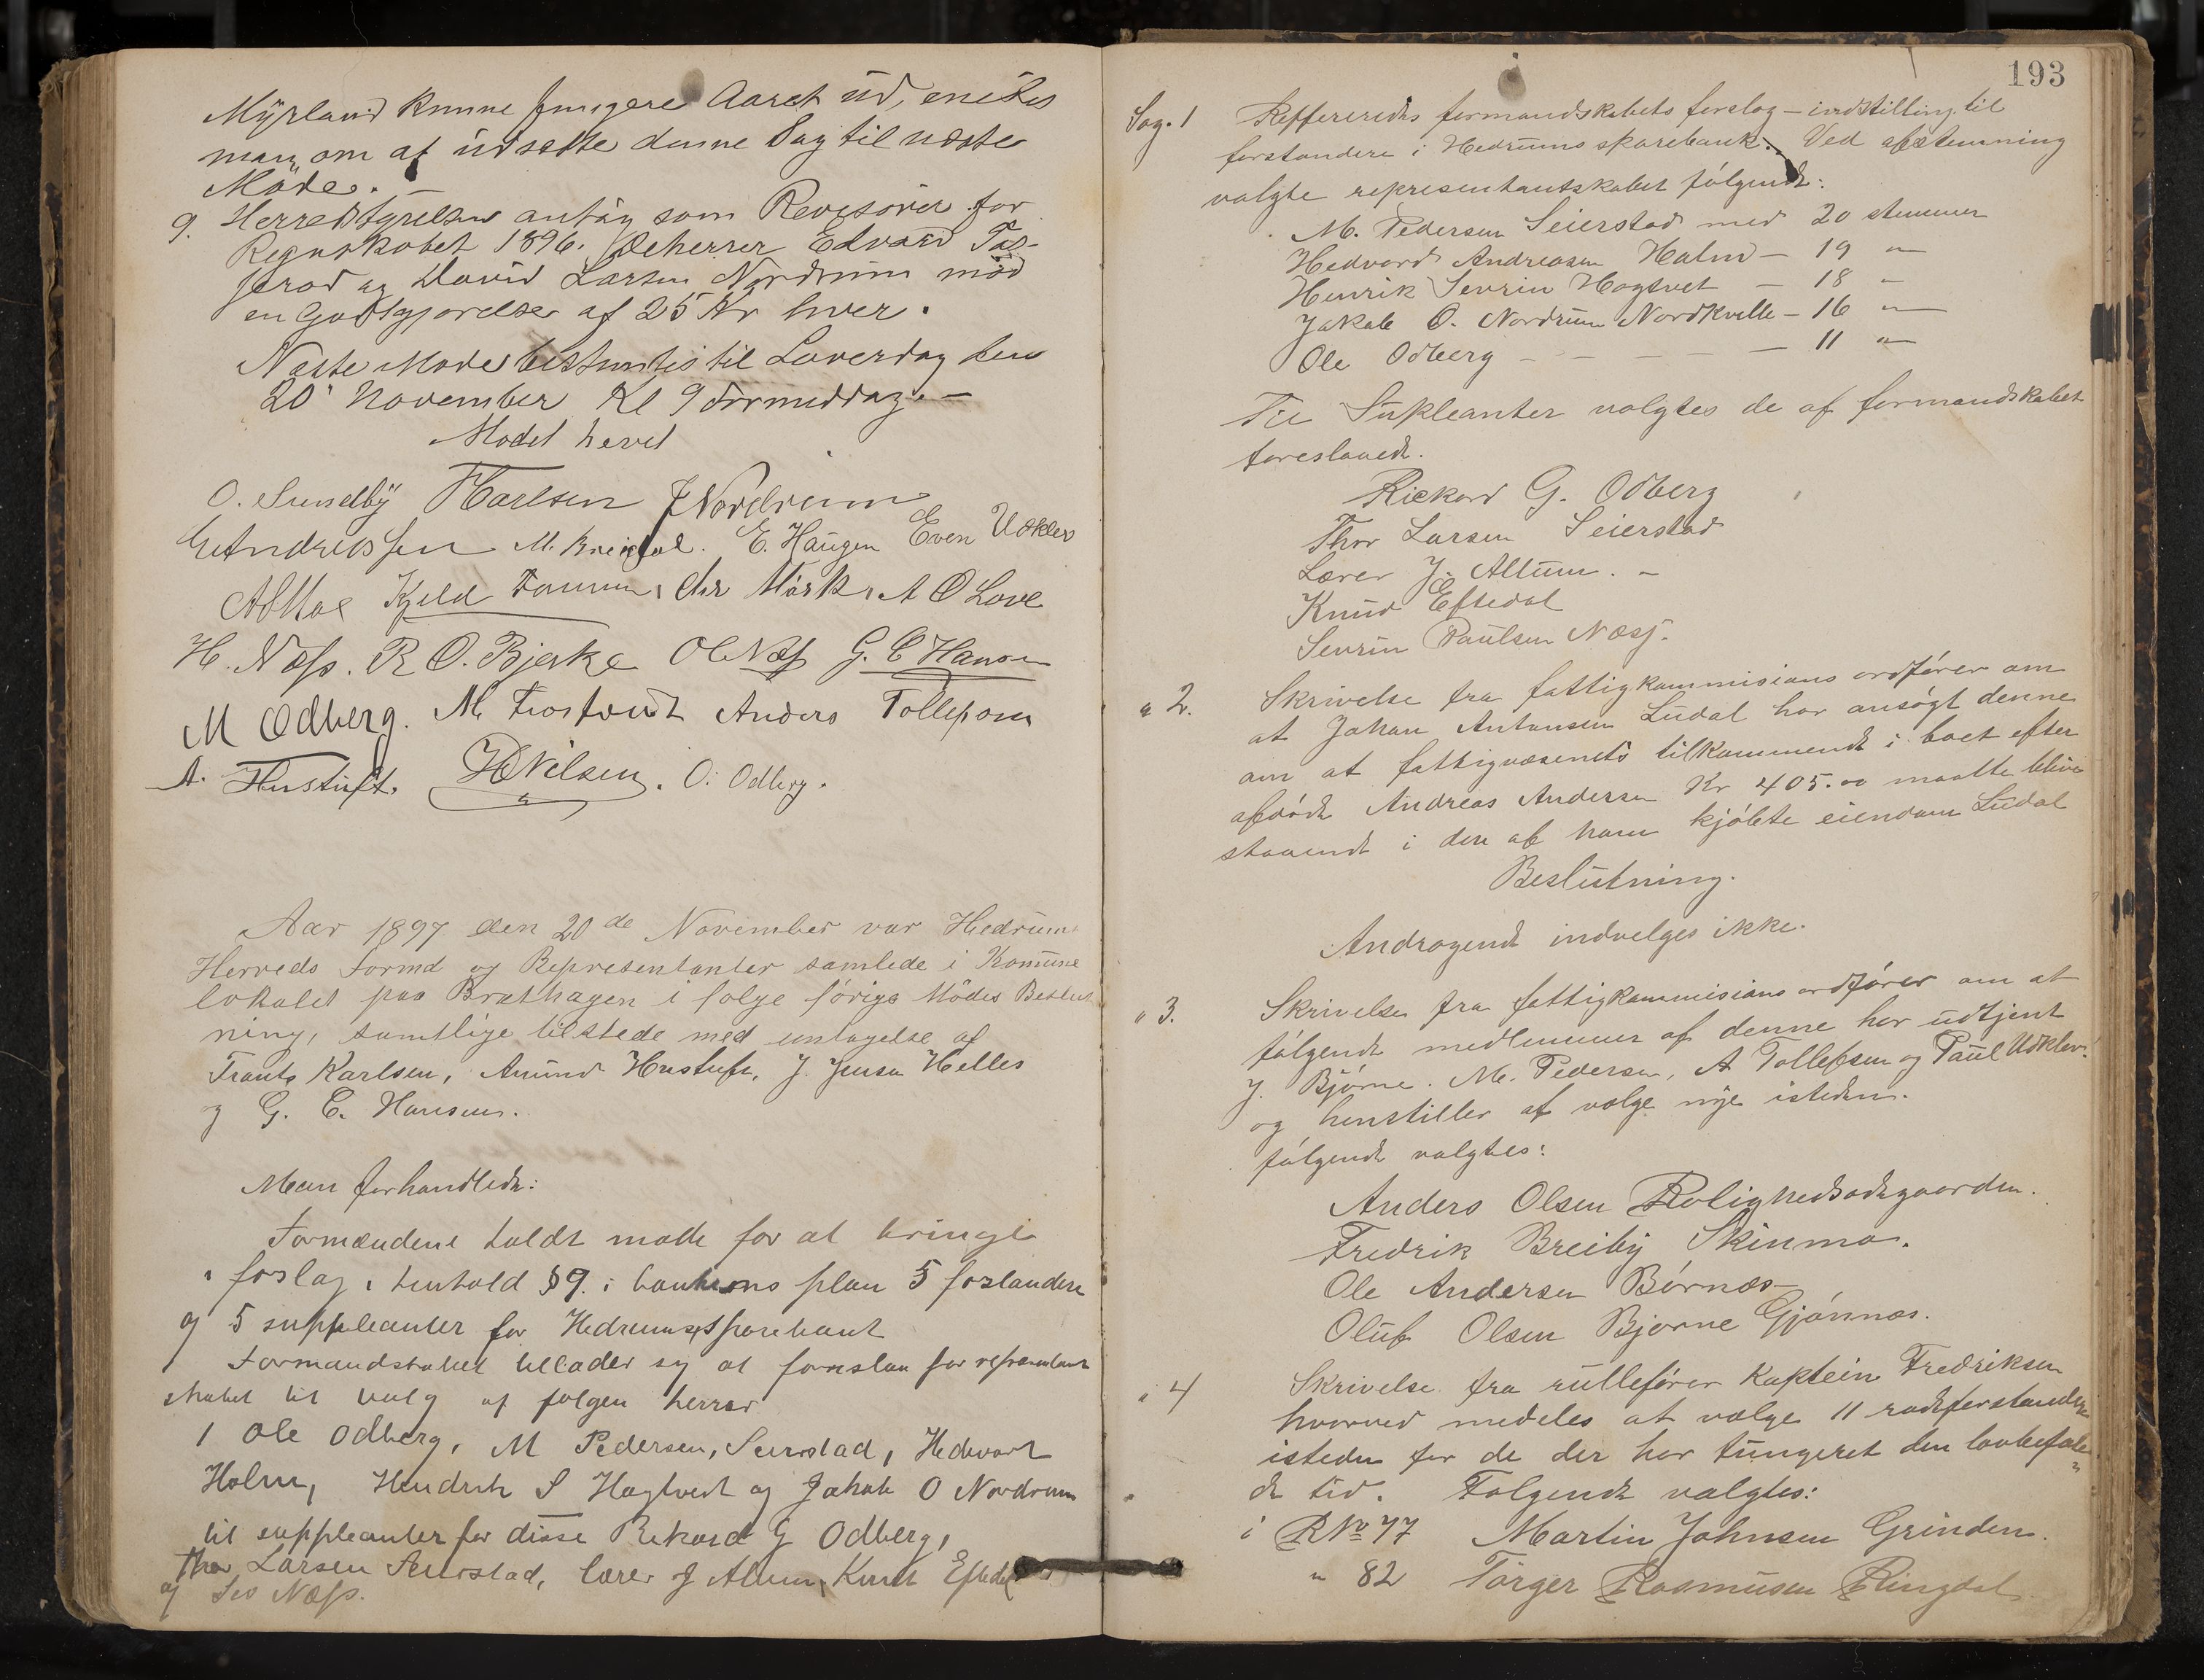 Myrland kunne fungere Aaret ud, enedes
man om at udsætte denne Sag til næste
Møde. —
9. Herredstyrelsen antog som Revisorer for
Regnskabet 1896. Deherrer Edvard Tas-
jerod og David Larsen Nordrum mod
en Godtgjørelse af 25 Kr hver.
Næste Møde bestemtes til Løverdag den
20' November Kl 9 Formiddag. —
Mødet hævet
O. Sundby F Karlsen J Nordrum
G Andreassen M. Kreigdal. E. Haugen Even Udklev
A Moe Kjeld Foennum, Chr Mørk, A O Love
H. Næss. R O. Bjerke Ol Næss G. C Hansen
M Odberg. M. Trosfondt Anders Tollefsen
A. Hustuft. H Nilsen. O. Odberg.
Aar 1897 den 20de November var Hedrums
Herreds Formd og Representanter samlede i Komune
lokalet paa Brathagen i følge forige Mødes Beslut
ning, samtlige tilstede med untagelse af
Frants Karlsen, Amund Hustuft, J. Jensen Helles
og G. C. Hansen.
Man forhandlede:
Formændene holdt møde for at bringe
i forslag i henhold § 9. i bankens plan 5 forstandere
og 5 suppleanter for Hedrums Sparebank
Formandskabet tillader sig at foreslaa for represendant
skabet til valg af følgen herrer
1 Ole Odberg, M Pedersen, Seierstad, Hedevart
Holm, Hendrik S Hagtvedt og Jakob O Nordrum
til suppleanter for disse Rikard G Odberg,
Thor Larsen Seierstad, lærer J Alum, Knut Eftedal
og Sev Næss.
193
Sag. 1 Refereredes formandskabets forslag – indstilling til
forstandere i Hedrums sparebank. Ved afstemning
valgte representantskabet følgende:
M. Pedersen Seierstad med 20 stemmer
Hedvard Andreasen Halm – 19 "
Henrik Sevrin Hagtvet – 18 "
Jakob O. Nordrum Nordkvelle – 16 "
Ole Odberg – – – – – 11 "
Til Supleanter valgtes de af formandskabet
foreslaaede.
Rickard G. Odberg
Thor Larsen Seierstad
Lærer J. Allum. –
Knud Eftedal
Sevrin Paulsen Næss.
" 2. Skrivelse fra fattigkommisions ordfører om
at Johan Antonsen Ludal har ansøgt denne
om at fattigvæsenets tilkommende i boet efter
afdøde Andreas Andersen Kr 405.00 maatte blive
staaende i den af ham kjøbte eiendom Ludal
Beslutning.
Andragende indvelges ikke.
" 3. Skrivelse fra fattigkommisions ordfører om at
følgende medlemmer af denne har udtjent
J. Bjørne. M. Pedersen, A Tollefsen og Paul Udklev.
og henstiller at vælge nye isteden.
følgende valgtes:
Anders Olsen Rolighedsødegaarden.
Fredrik Breiby Skinmo.
Ole Andersen Børnes
Oluf Olsen Bjørne Gjønnes.
" 4 Skrivelse fra rullefører Kaptein Fredriksen
hvorved medeles at vælge 11 rodeforstandere
isteden for de der har fungeret den lovbefale
de tid. Følgende valgtes:
i R No 77 Martin Johnsen Grinden.
" 82 Torger Rasmusen Ringdal